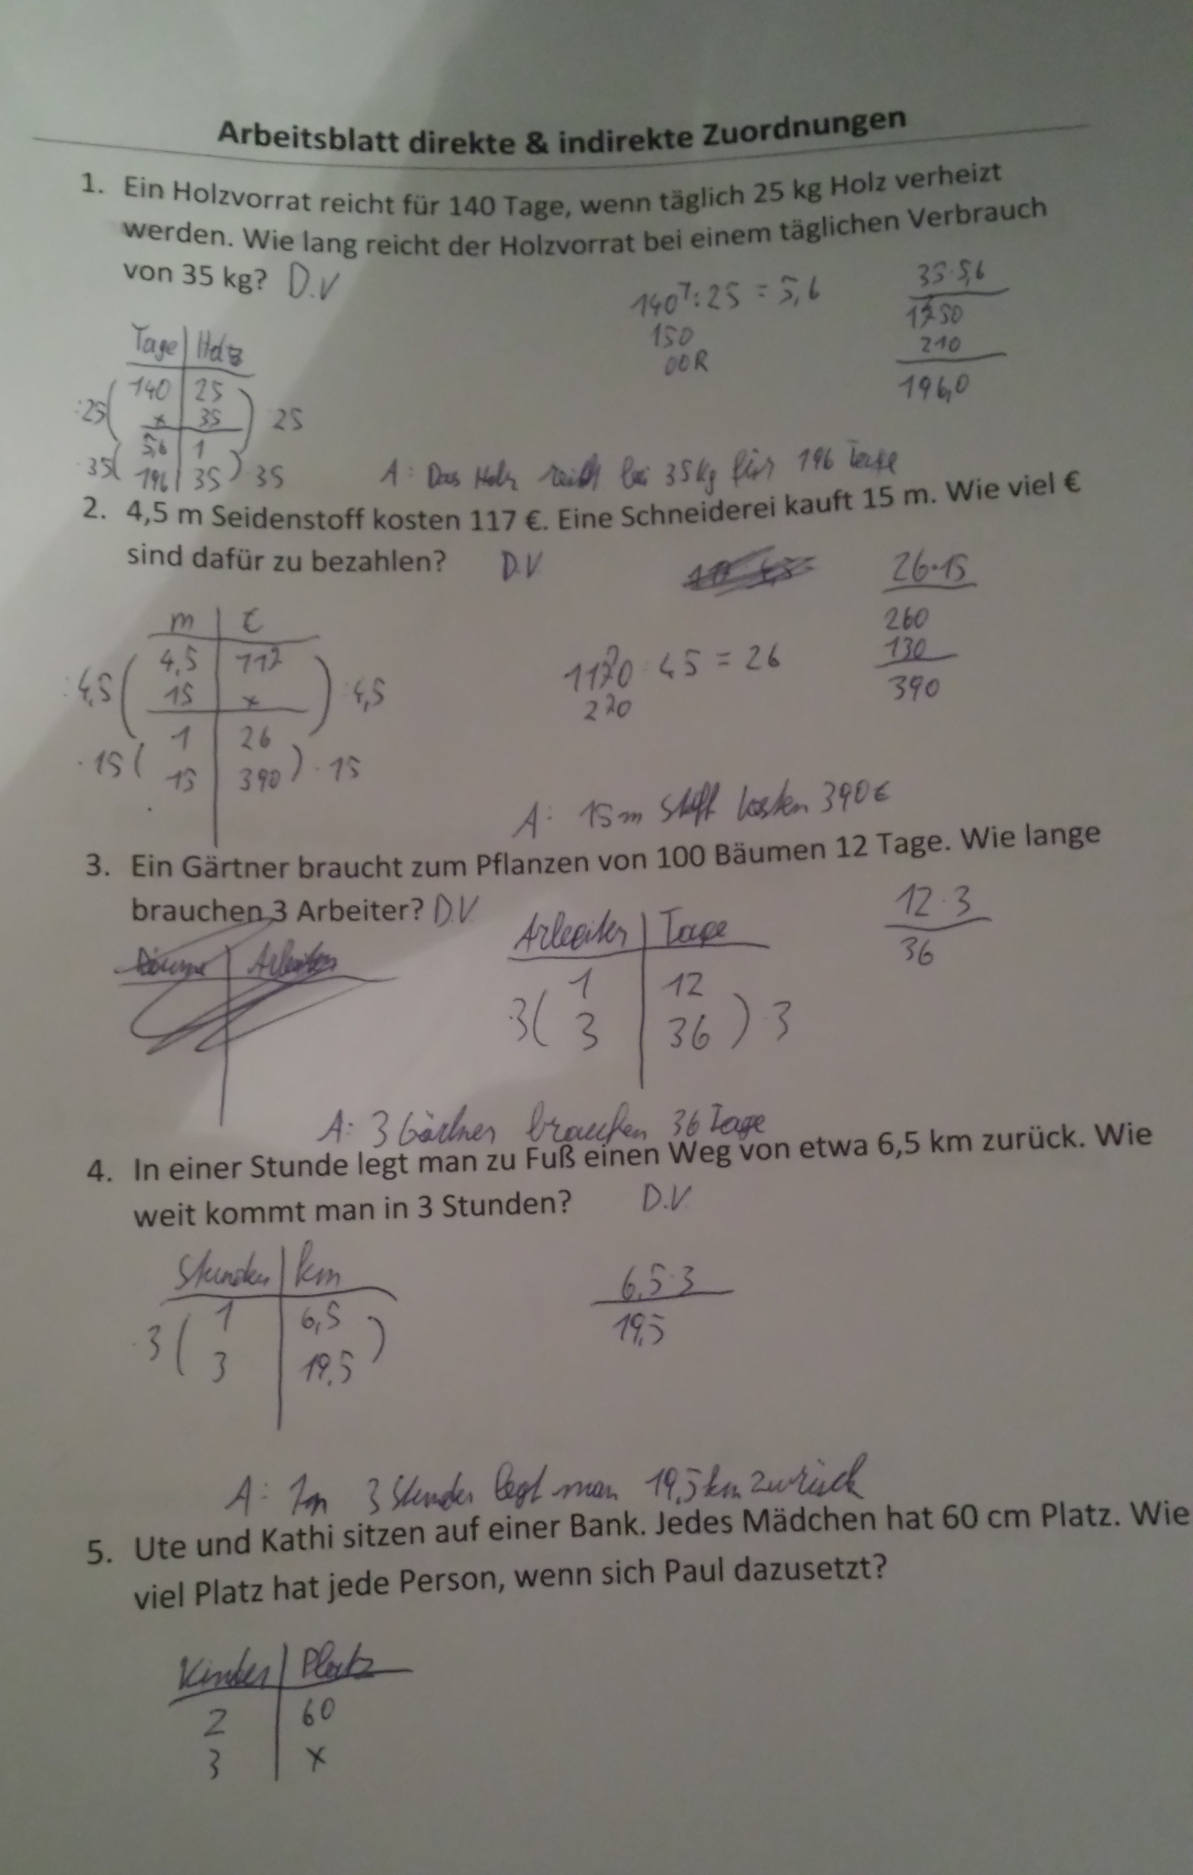 Arbeitsblatt direkte & indirekte Zuordnungen
1. Ein Holzvorrat reicht für 140 Tage, wenn täglich 25 kg Holz verheizt
werden. Wie lang reicht der Holzvorrat bei einem täglichen Verbrauch
von 35 kg? D.V
140:25 = 5,6
150
00R
35·5,6
1750
210
196,0
Tage | Holz
140 | 25
x | 35
5,6 | 1
196 | 35
:25 ( ) 25
·35 ( ) ·35
A: Das Holz reich bei 35kg für 196 Tage
2. 4,5 m Seidenstoff kosten 117 €. Eine Schneiderei kauft 15 m. Wie viel €
sind dafür zu bezahlen? D.V.
26·15
260
130
390
m | €
4,5 | 117
15 | x
1 | 26
15 | 390
:4,5 ( ) :4,5
·15 ( ) ·15
1170 : 45 = 26
270
A: 15m Stoff kosten 390€
3. Ein Gärtner braucht zum Pflanzen von 100 Bäumen 12 Tage. Wie lange
brauchen 3 Arbeiter? D.V.
12·3
36
Bäume | Arbeiter
Arbeiter | Tage
1 | 12
3 | 36
·3 ( ) ·3
A: 3 Gärtner brauchen 36 Tage
4. In einer Stunde legt man zu Fuß einen Weg von etwa 6,5 km zurück. Wie
weit kommt man in 3 Stunden? D.V.
Stunden | km
1 | 6,5
3 | 19,5
·3 ( )
6,5·3
19,5
A: Im 3 Stunden legt man 19,5km zurück
5. Ute und Kathi sitzen auf einer Bank. Jedes Mädchen hat 60 cm Platz. Wie
viel Platz hat jede Person, wenn sich Paul dazusetzt?
Kinder | Platz
2 | 60
3 | x